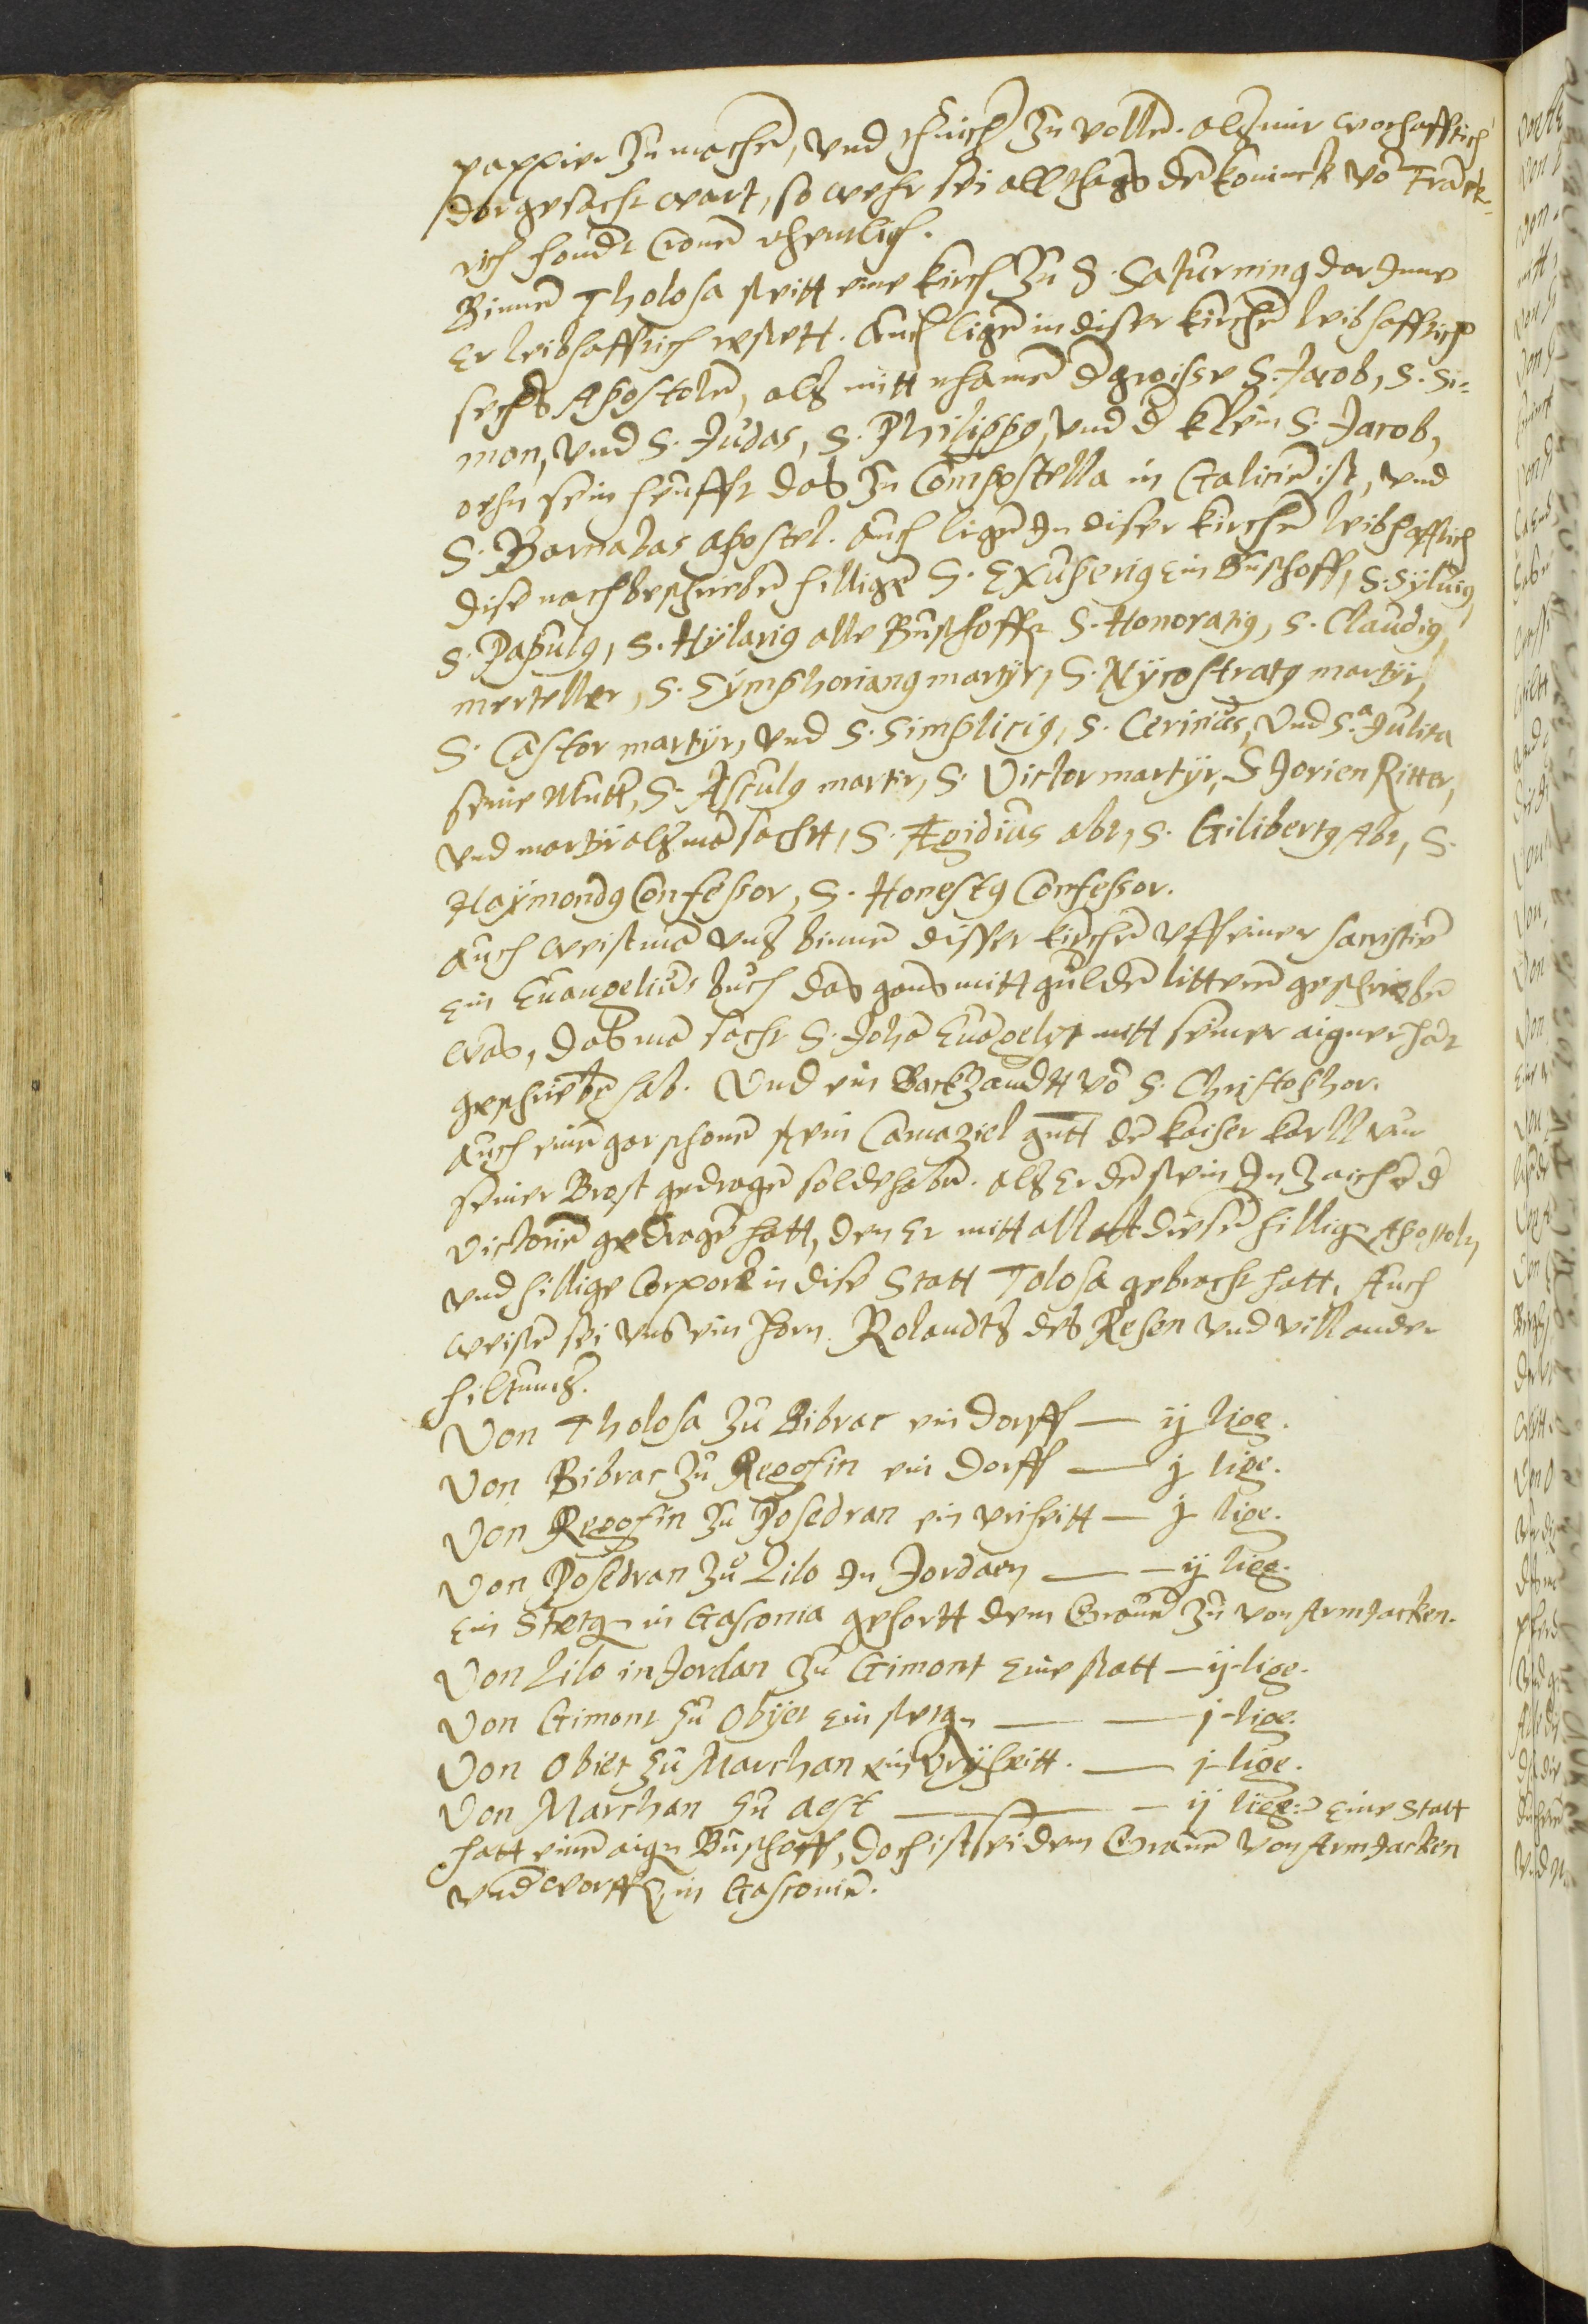 pappier zu machen, und thuich zu vollen. alß mir worhafftich
dor gesacht wart, so wehr sei all thags den konninck von Franck-
rich hondt Cronen ehemlich.
Binnen Tholosa steitt eine kirch zu S. Saturning dar Inne
Er leibhafftich restett. Auch ligen in diser kirchen leibhafftich
sechs Apostolen, alß mitt nhamen d groisse S. Jacob, S. Si-
mon, und S. Judas, S. Philippg, und d klein S. Jacob,
oehn sein heufft das zu Compostella in Galicien ist, und
S. Barnabas apostel. Auch ligen In diser kirchen leibhafftich
dise nachbeschrieben hilligen S. Exuperig Ein Buschoff, S. Sylvig,
S. Papulg, S. Hÿlarig alle Buschoffe S. Honoratg, S. Claudig,
merteller, S. Sÿmphoriang martÿr, S. Nÿcostratg martÿr,
S. Castor martÿr, und S. Simplicig, S. Cerinus, Und S.a Julita
seine Mutter, S. Asculg martir, S. Victor martÿr, S Jorien Ritter,
und martir alß man sachtt, S. Ægidius abt, S. Gilibertg Abt, S.
Haÿmondg Confessor, S. Honestg Confessor.
Auch weist man unß binnen disser kirchen uff einer sacristien
Ein Evangeliums buch das gants mitt gulden litteren geschrieben
was, das man sacht S. Johan Evangelist mitt seiner aigner hadt
geschrieben hab. Und ein Backzandtt von S. Christophor.
Auch einen gar schonen stein Camaziel gntt den kaiser karll an
seiner Brost gedragen solde haben. alß Er den stein In zaichen d
victorien gedragen hatt, den Er mitt all diesen hillig Apostoln
und hillige Corpore in dise Statt Tolosa gebracht hatt, Auch
weisen sei uns ein horn Rolandts des Resen und vill ander
hiltumß.
Von Tholosa zu Bibrac ein dorff — ij lige.
Von Bibrac zu Regofin ein dorff — j lige.
Von Regofin zu Posedran ein weisritt — j lige.
Von Posedran zu Lilo In Jordaen — — ij lieg.
Ein Stetg in Gasconia gehortt dem Graven zu von Armjacken.
Von Lilo in Jordan zu Gimont Eine statt — ij lige.
Von Gimont zu Obÿet Ein stetg — — j lige.
Von Obiet zu Marchan ein wÿsritt. — j lige.
Von Marchan zu Aest — — ij lieg: Eine Statt
hatt einen aign Buschoff, doch ist sei dem Graven von Armjacken
underworffen in Gasconien.